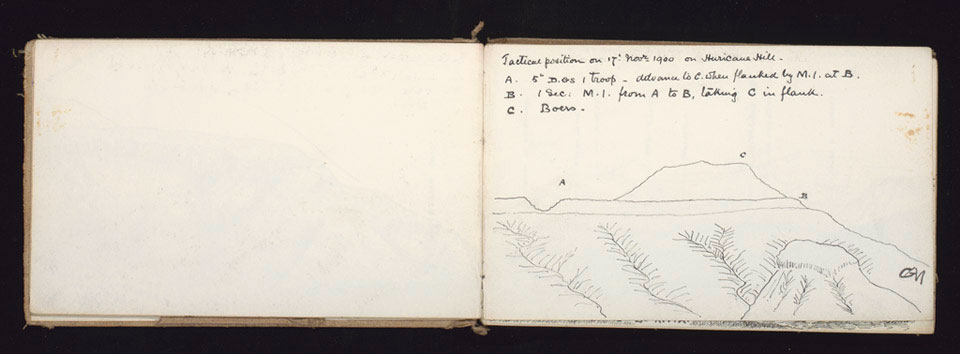 Tactical position on 17th Novr 1900 on Huricane Hill.
A. 5th D.Gs 1 troop - advance to C. when flanked by M.I. at B.
B. 1 Sec: M.I. from A to B, taking C in flank.
C. Boers -
C
A
B